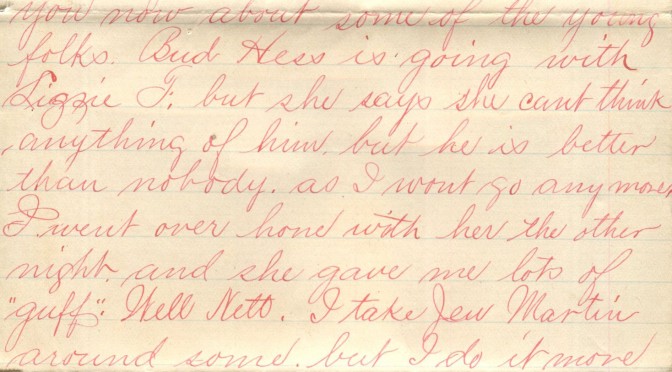 you now about some of the young
folks. Bud Hess is going with
Lizzie F. but she says she cant think
anything of him. but he is better
than nobody. as I wont go anymore
I went over home with her the other
night. and she gave me lots of
"guff". Well Nett. I take Jen Martin
around some. but I do it more